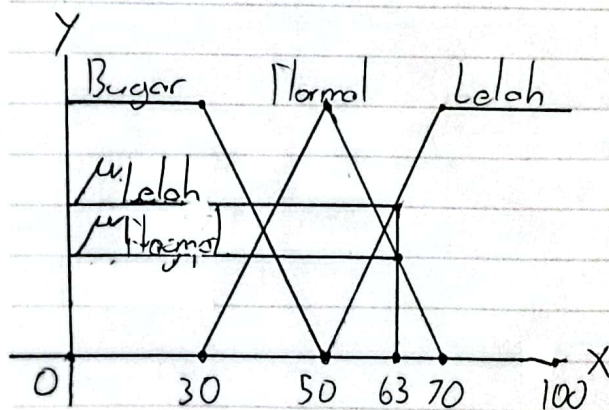 Y
Bugar Normal Lelah
μ Lelah
μ Normal
0 30 50 63 70 100 X